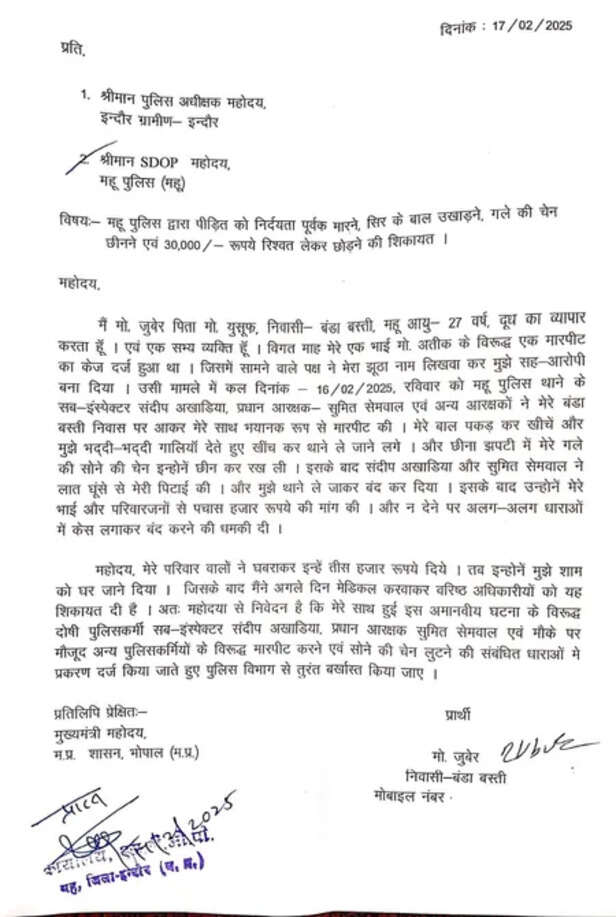 दिनांक : 17/02/2025
प्रति,
1. श्रीमान पुलिस अधीक्षक महोदय,
इन्दौर ग्रामीण– इन्दौर
2. श्रीमान SDOP महोदय,
महू पुलिस (महू)
विषयः– महू पुलिस द्वारा पीड़ित को निर्दयता पूर्वक मारने, सिर के बाल उखाड़ने, गले की चेन
छीनने एवं 30,000/– रूपये रिश्वत लेकर छोड़ने की शिकायत ।
महोदय,
मैं मो. जुबेर पिता मो. युसूफ, निवासी– बंडा बस्ती, महू आयु– 27 वर्ष, दूध का व्यापार
करता हूँ । एवं एक सभ्य व्यक्ति हूँ । विगत माह मेरे एक भाई मो. अतीक के विरूद्ध एक मारपीट
का केज दर्ज हुआ था । जिसमें सामने वाले पक्ष ने मेरा झूठा नाम लिखवा कर मुझे सह–आरोपी
बना दिया । उसी मामले में कल दिनांक – 16/02/2025, रविवार को महू पुलिस थाने के
सब–इंस्पेक्टर संदीप अखाडिया, प्रधान आरक्षक– सुमित सेमवाल एवं अन्य आरक्षकों ने मेरे बंडा
बस्ती निवास पर आकर मेरे साथ भयानक रूप से मारपीट की । मेरे बाल पकड़ कर खीचें और
मुझे भद्दी–भद्दी गालियाँ देते हुए खींच कर थाने ले जाने लगे । और छीना झपटी में मेरे गले
की सोने की चेन इन्होनें छीन कर रख ली । इसके बाद संदीप अखाडिया और सुमित सेमवाल ने
लात घूंसे से मेरी पिटाई की । और मुझे थाने ले जाकर बंद कर दिया । इसके बाद उन्होनें मेरे
भाई और परिवारजनों से पचास हजार रूपये की मांग की । और न देने पर अलग–अलग धाराओं
में केस लगाकर बंद करने की धमकी दी ।
महोदय, मेरे परिवार वालों ने घबराकर इन्हें तीस हजार रूपये दिये । तब इन्होनें मुझे शाम
को घर जाने दिया । जिसके बाद मैंने अगले दिन मेडिकल करवाकर वरिष्ठ अधिकारीयों को यह
शिकायत दी है । अतः महोदया से निवेदन है कि मेरे साथ हुई इस अमानवीय घटना के विरूद्ध
दोषी पुलिसकर्मी सब–इंस्पेक्टर संदीप अखाडिया, प्रधान आरक्षक सुमित सेमवाल एवं मौके पर
मौजूद अन्य पुलिसकर्मियों के विरूद्ध मारपीट करने एवं सोने की चेन लुटने की संबंधित धाराओं मे
प्रकरण दर्ज किया जाते हुए पुलिस विभाग से तुरंत बर्खास्त किया जाए ।
प्रतिलिपि प्रेक्षितः–
मुख्यमंत्री महोदय,
म.प्र. शासन, भोपाल (म.प्र.)
प्रार्थी
मो. जुबेर
निवासी–बंडा बस्ती
मोबाइल नंबर
प्राप्त
कार्यालय,
महु, जिला-इन्दौर (म. प्र.)